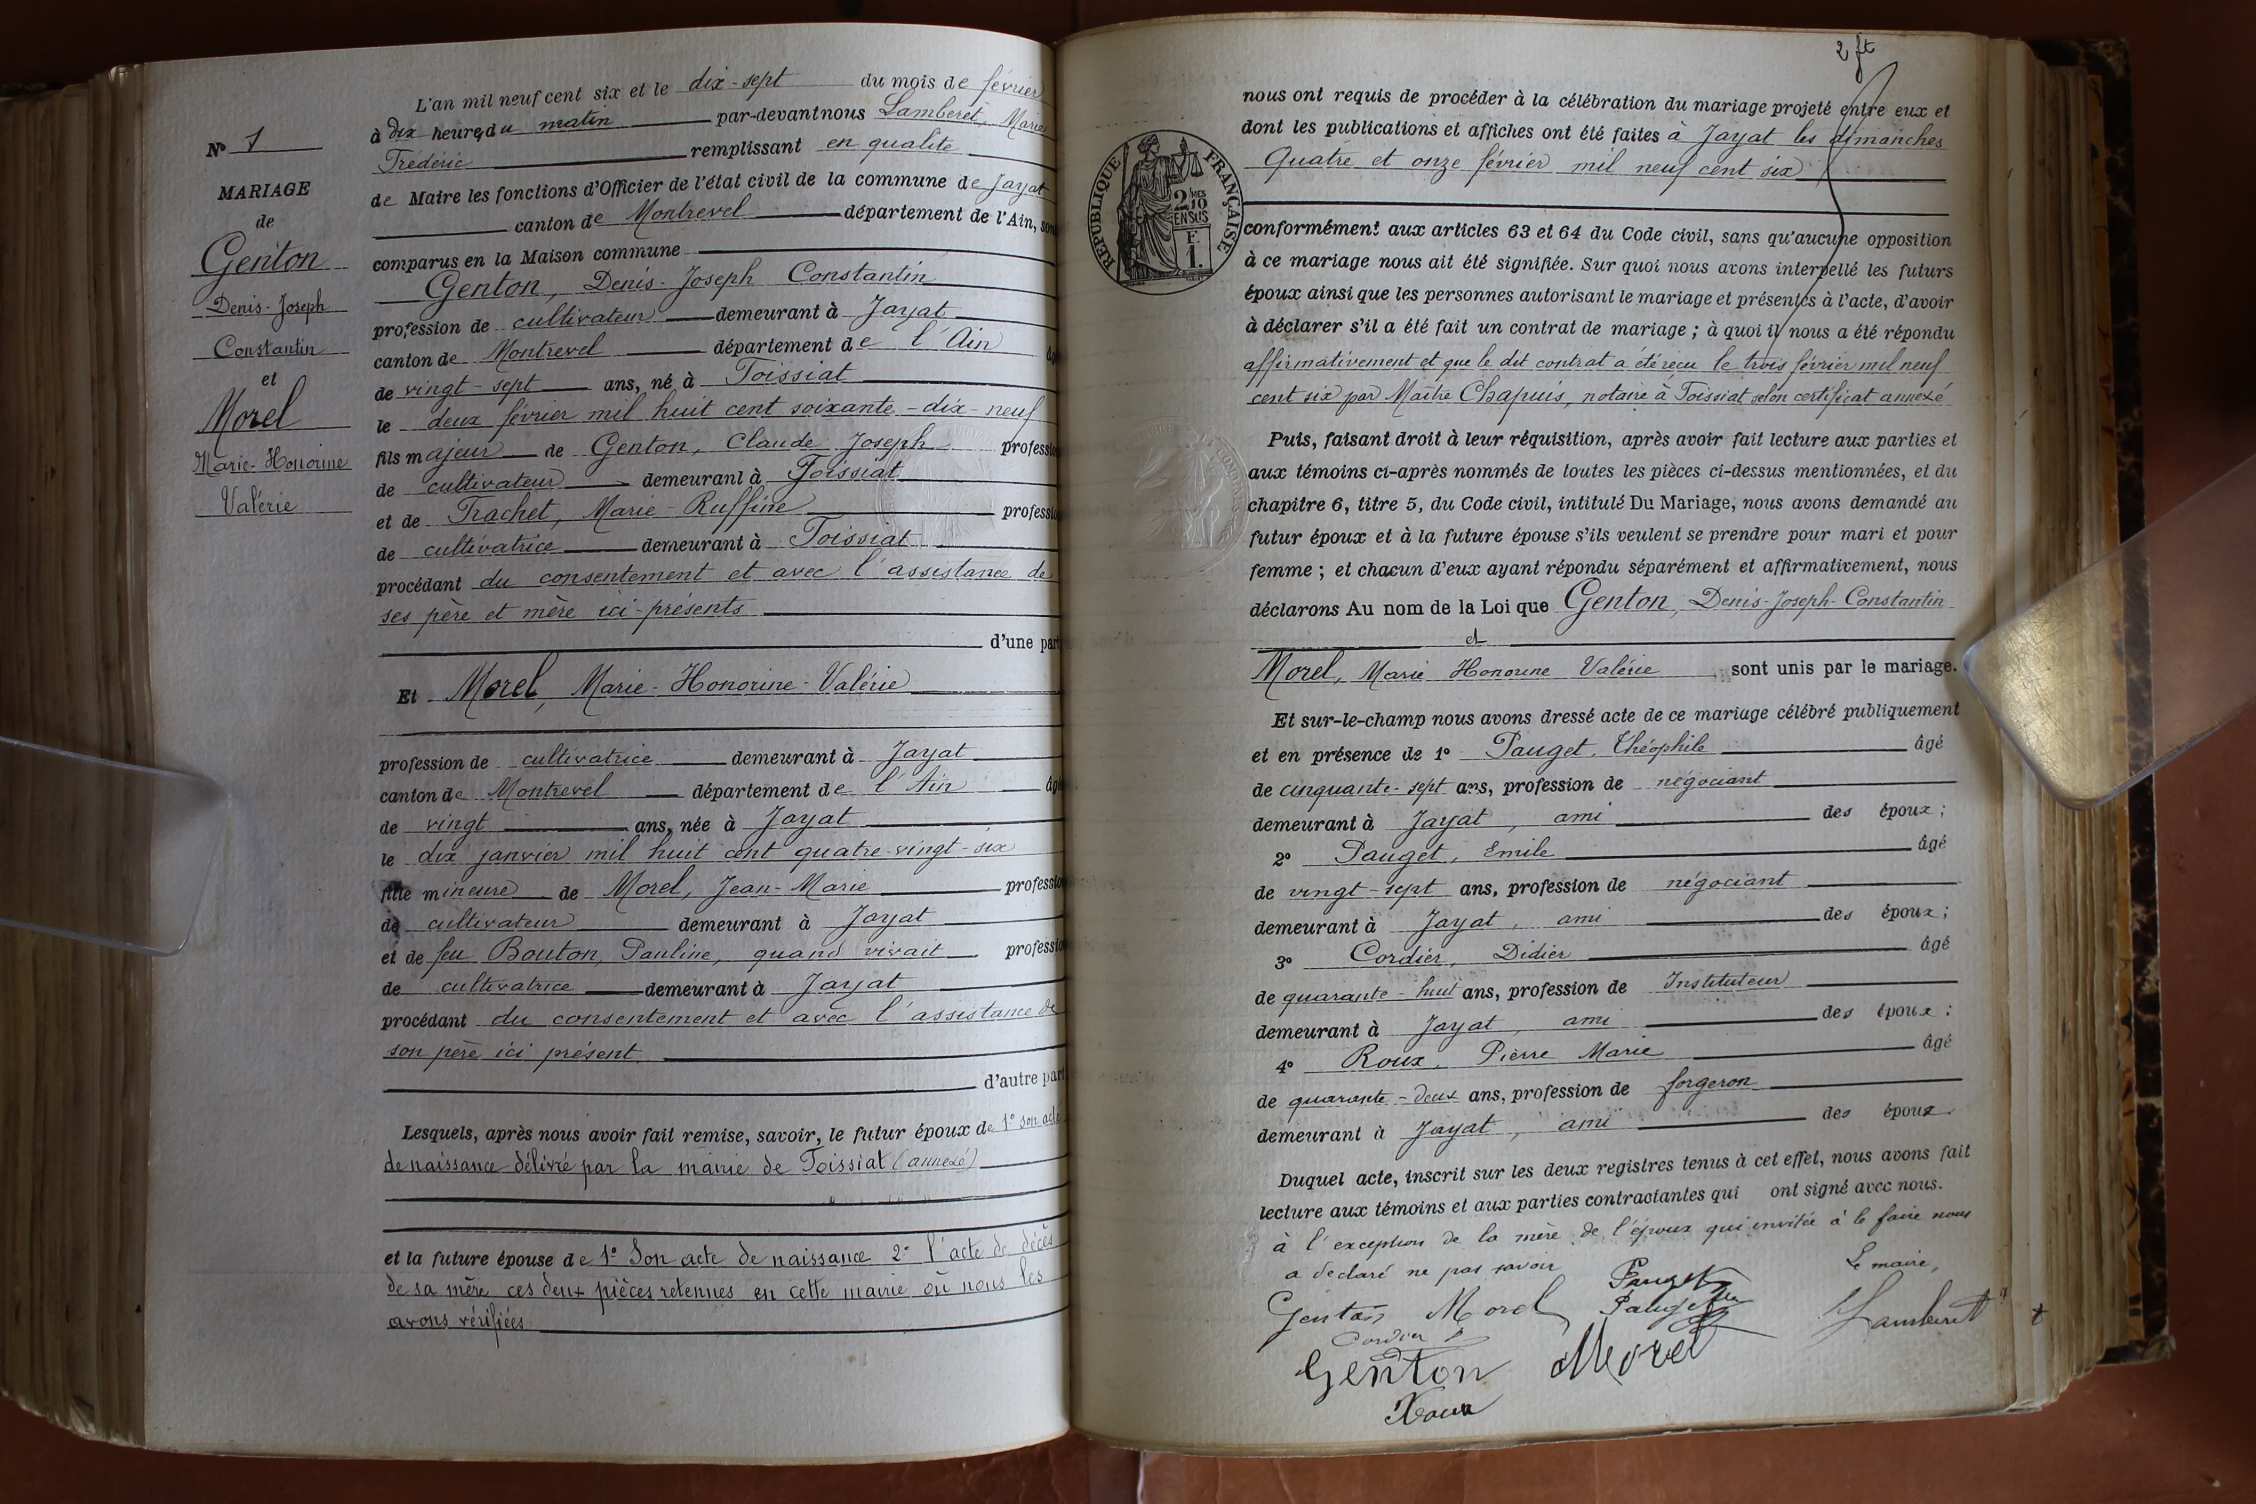 L'an mil neuf cent six et le dix-sept du mois de février
à dix heures du matin par-devant nous Lamberet, Marie
Frédéric remplissant en qualité
de Maire les fonctions d'Officier de l'état civil de la commune de Jayat
canton de Montrevel département de l'Ain, sont
comparus en la Maison commune
N° 1
MARIAGE
de
Genton
Denis-Joseph
Constantin
et
Morel
Marie-Honorine
Valérie
Genton, Denis-Joseph Constantin
profession de cultivateur demeurant à Jayat
canton de Montrevel département de l'Ain âgé
de vingt-sept ans, né à Foissiat
le deux février mil huit cent soixante-dix-neuf
fils majeur de Genton, Claude Joseph profession
de cultivateur demeurant à Foissiat
et de Trachet, Marie-Ruffine profession
de cultivatrice demeurant à Foissiat
procédant du consentement et avec l'assistance de
ses père et mère ici-présents
d'une part
Et Morel, Marie-Honorine-Valérie
profession de cultivatrice demeurant à Jayat
canton de Montrevel département de l'Ain âgé
de vingt ans, née à Jayat
le dix janvier mil huit cent quatre-vingt-six
fille mineure de Morel, Jean-Marie profession
de cultivateur demeurant à Jayat
et de feu Bouton, Pauline, quand vivait profession
de cultivatrice demeurant à Jayat
procédant du consentement et avec l'assistance de
son père ici présent
d'autre part
Lesquels, après nous avoir fait remise, savoir, le futur époux de 1° son acte
de naissance délivré par la mairie de Foissiat (annexé)
et la future épouse de 1° Son acte de naissance 2° l'acte de décès
de sa mère ces deux pièces retenues en cette mairie où nous les
avons vérifiées
2 ft
RÉPUBLIQUE FRANÇAISE
2/10 EN SUS
F.
1.
nous ont requis de procéder à la célébration du mariage projeté entre eux et
dont les publications et affiches ont été faites à Jayat les dimanches
Quatre et onze février mil neuf cent six
conformément aux articles 63 et 64 du Code civil, sans qu'aucune opposition
à ce mariage nous ait été signifiée. Sur quoi nous avons interpellé les futurs
époux ainsi que les personnes autorisant le mariage et présentes à l'acte, d'avoir
à déclarer s'il a été fait un contrat de mariage ; à quoi il nous a été répondu
affirmativement et que le dit contrat a été reçu le trois février mil neuf
cent six par Maître Chapuis, notaire à Foissiat selon certificat annexé
Puis, faisant droit à leur réquisition, après avoir fait lecture aux parties et
aux témoins ci-après nommés de toutes les pièces ci-dessus mentionnées, et du
chapitre 6, titre 5, du Code civil, intitulé Du Mariage, nous avons demandé au
futur époux et à la future épouse s'ils veulent se prendre pour mari et pour
femme ; et chacun d'eux ayant répondu séparément et affirmativement, nous
déclarons Au nom de la Loi que Genton, Denis-Joseph-Constantin
et
Morel, Marie Honorine Valérie sont unis par le mariage.
Et sur-le-champ nous avons dressé acte de ce mariage célébré publiquement
et en présence de 1° Pauget, Théophile âgé
de cinquante-sept ans, profession de négociant
demeurant à Jayat, ami des époux ;
2° Pauget, Emile âgé
de vingt-sept ans, profession de négociant
demeurant à Jayat, ami des époux ;
3° Cordier, Didier âgé
de quarante-huit ans, profession de Instituteur
demeurant à Jayat, ami des époux ;
4° Roux, Pierre Marie âgé
de quarante-deux ans, profession de forgeron
demeurant à Jayat, ami des époux
Duquel acte, inscrit sur les deux registres tenus à cet effet, nous avons fait
lecture aux témoins et aux parties contractantes qui ont signé avec nous.
à l'exception de la mère de l'époux qui invitée à le faire nous
a déclaré ne pas savoir
Le maire,
Genton Morel Pauget
Pauget Lamberet
Cordier D
Genton Morel
Roux